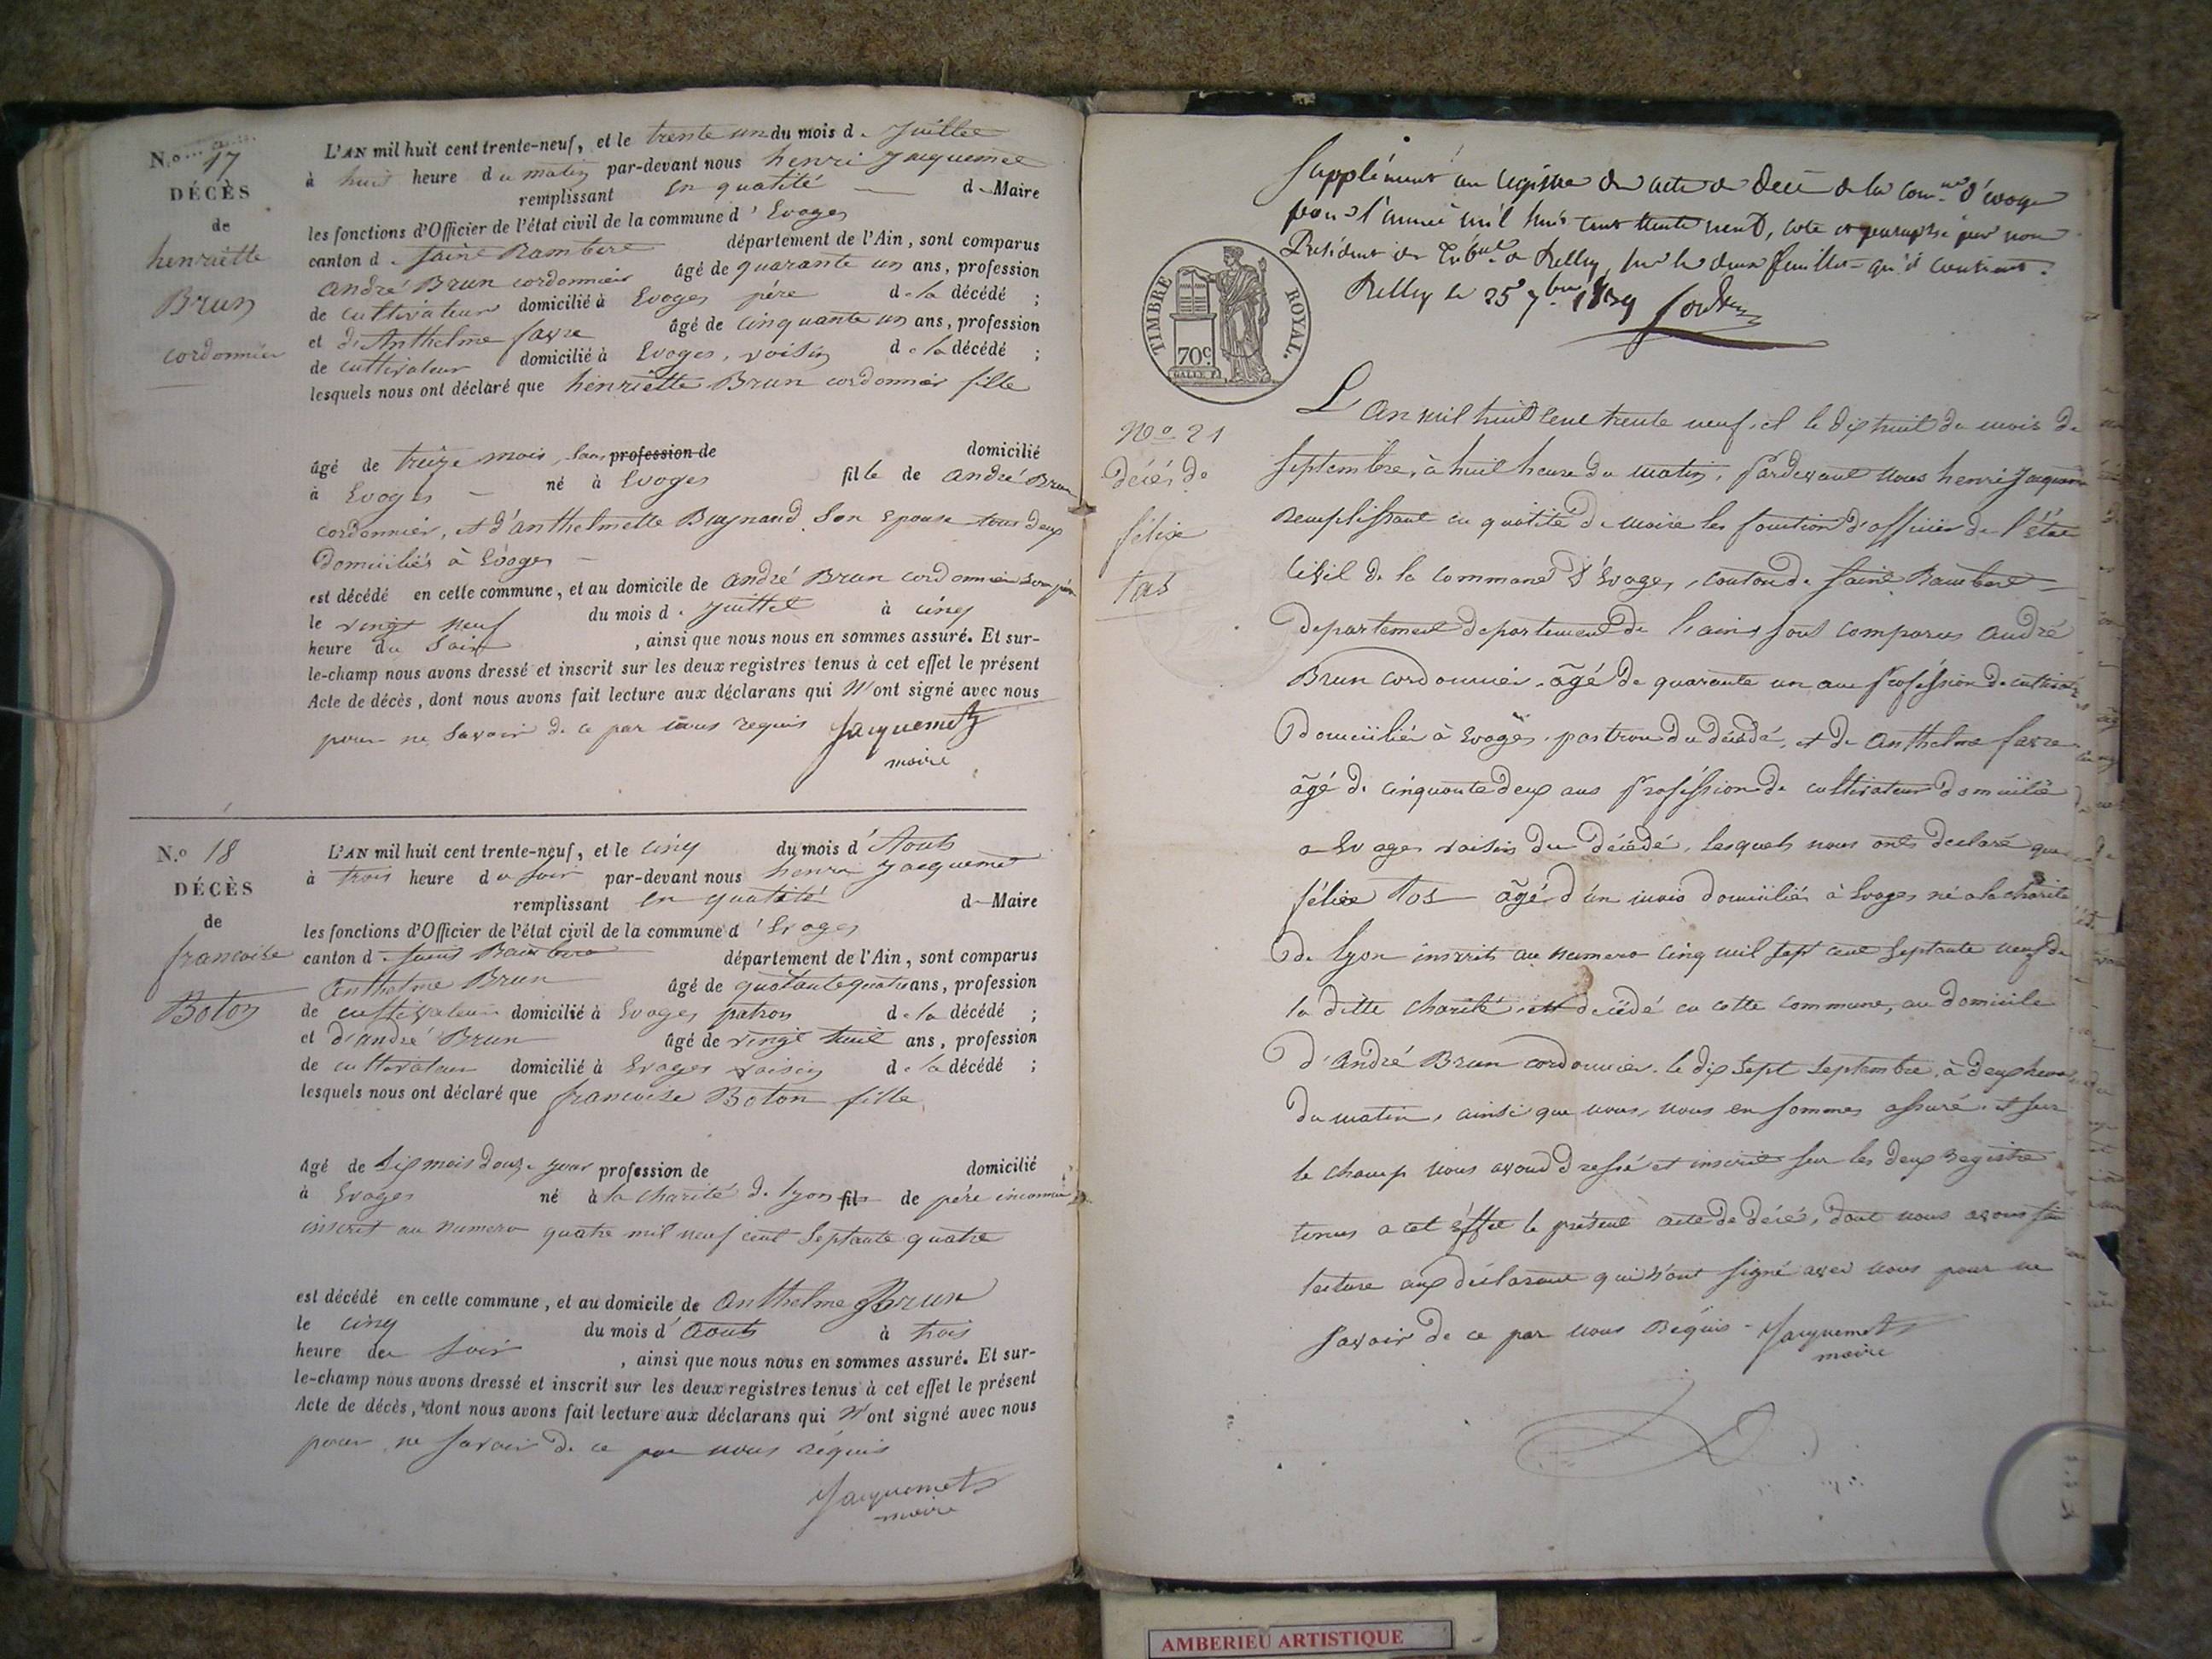 N.o 17
DÉCÈS
de
henriette
Brun
cordonnier
L'AN mil huit cent trente-neuf, et le trente un du mois d. Juillet
à huit heure du matin par-devant nous henri Jacquemet
remplissant en qualité d. Maire
les fonctions d'Officier de l'état civil de la commune d' Evoges
canton d. Saint Rambert département de l'Ain, sont comparus
andré Brun cordonnier âgé de quarante un ans, profession
de cultivateur domicilié à Evoges père d. la décédé ;
et d'Anthelme favre âgé de cinquante un ans, profession
de cultivateur domicilié à Evoges, voisin d. la décédé ;
lesquels nous ont déclaré que henriette Brun cordonnier fille
âgé de treize mois, sans profession de domicilié
à Evoges né à Evoges fille de andré Brun
cordonnier, et d'anthelmette son Epouse tous deux
Domiciliés à Evoges
est décédé en cette commune, et au domicile de andré Brun cordonnier son père
le vingt neuf du mois d. Juillet à cinq
heure du Soir , ainsi que nous nous en sommes assuré. Et sur-
le-champ nous avons dressé et inscrit sur les deux registres tenus à cet effet le présent
Acte de décès, dont nous avons fait lecture aux déclarans qui N'ont signé avec nous
pour ne Savoir de ce par nous requis Jacquemet
maire
N.o 18
DÉCÈS
de
francoise
Boton
L'AN mil huit cent trente-neuf, et le cinq du mois d' Aout
à trois heure du soir par-devant nous henri Jacquemet
remplissant en qualité d. Maire
les fonctions d'Officier de l'état civil de la commune d' Evoges
canton d. Saint Rambert département de l'Ain, sont comparus
Anthelme Brun âgé de quatre ans, profession
de cultivateur domicilié à Evoges patron d. la décédé ;
et d'andré Brun âgé de vingt huit ans, profession
de cultivateur domicilié à Evoges voisin d. la décédé ;
lesquels nous ont déclaré que francoise Boton fille
âgé de mois profession de domicilié
à Evoges né à la charité de lyon fil de père inconnu
inscrit au numero quatre mil neuf cent Septante quatre
est décédé en cette commune, et au domicile de Anthelme Brun
le cinq du mois d' Aout à trois
heure du Soir , ainsi que nous nous en sommes assuré. Et sur-
le-champ nous avons dressé et inscrit sur les deux registres tenus à cet effet le présent
Acte de décès, dont nous avons fait lecture aux déclarans qui N'ont signé avec nous
pour ne Savoir de ce par nous réquis
Jacquemet
maire
Supplément au registre des actes de décès de la com.ne d'évoges
pour l'année mil huit cent trente neuf, coté et paraphé par nous
Président du Trib.al de Belley, sur les deux feuillets qu'il contient.
Belley le 25 7bre 1839
TIMBRE ROYAL.
70c.
N.o 21
Décés de
félix
tas
L'an mil huit cent trente neuf, et le dix huit du mois de
Septembre, à huit heure du matin, Pardevant nous henri Jacquemet
remplissant en qualité de maire les fonction d'officier de l'état
Civil de la commune d'Evoges, canton de Saint Rambert
département département de l'ain, sont comparus andré
Brun cordonnier, âgé de quarante un ans Proféssion de cultivateur
Domicilié à Evoges, pastron du décédé, et de Anthelme favre
âgé de cinquante deux ans Proféssion de cultivateur domicilié
a Evoges voisin du décédé, lesquels nous onts déclaré que
félix tos âgé d'un mois domicilié à Evoges né a la charité
De lyon inscrit au numero cinq mil sept cent septante neuf de
la ditte charité, est décédé en cette commune, au domicile
D'André Brun cordonnier, le dix sept Septembre, à deux heure
du matin, ainsi que nous, nous en sommes assuré, et sur
le champ nous avons dressé et inscrit sur les deux registre
tenus a cet éffet le présent acte de décés, dont nous avons fait
lecture aux déclarant qui n'ont signé avec nous pour ne
savoir de ce par nous Réquis - Jacquemet
maire
AMBERIEU ARTISTIQUE